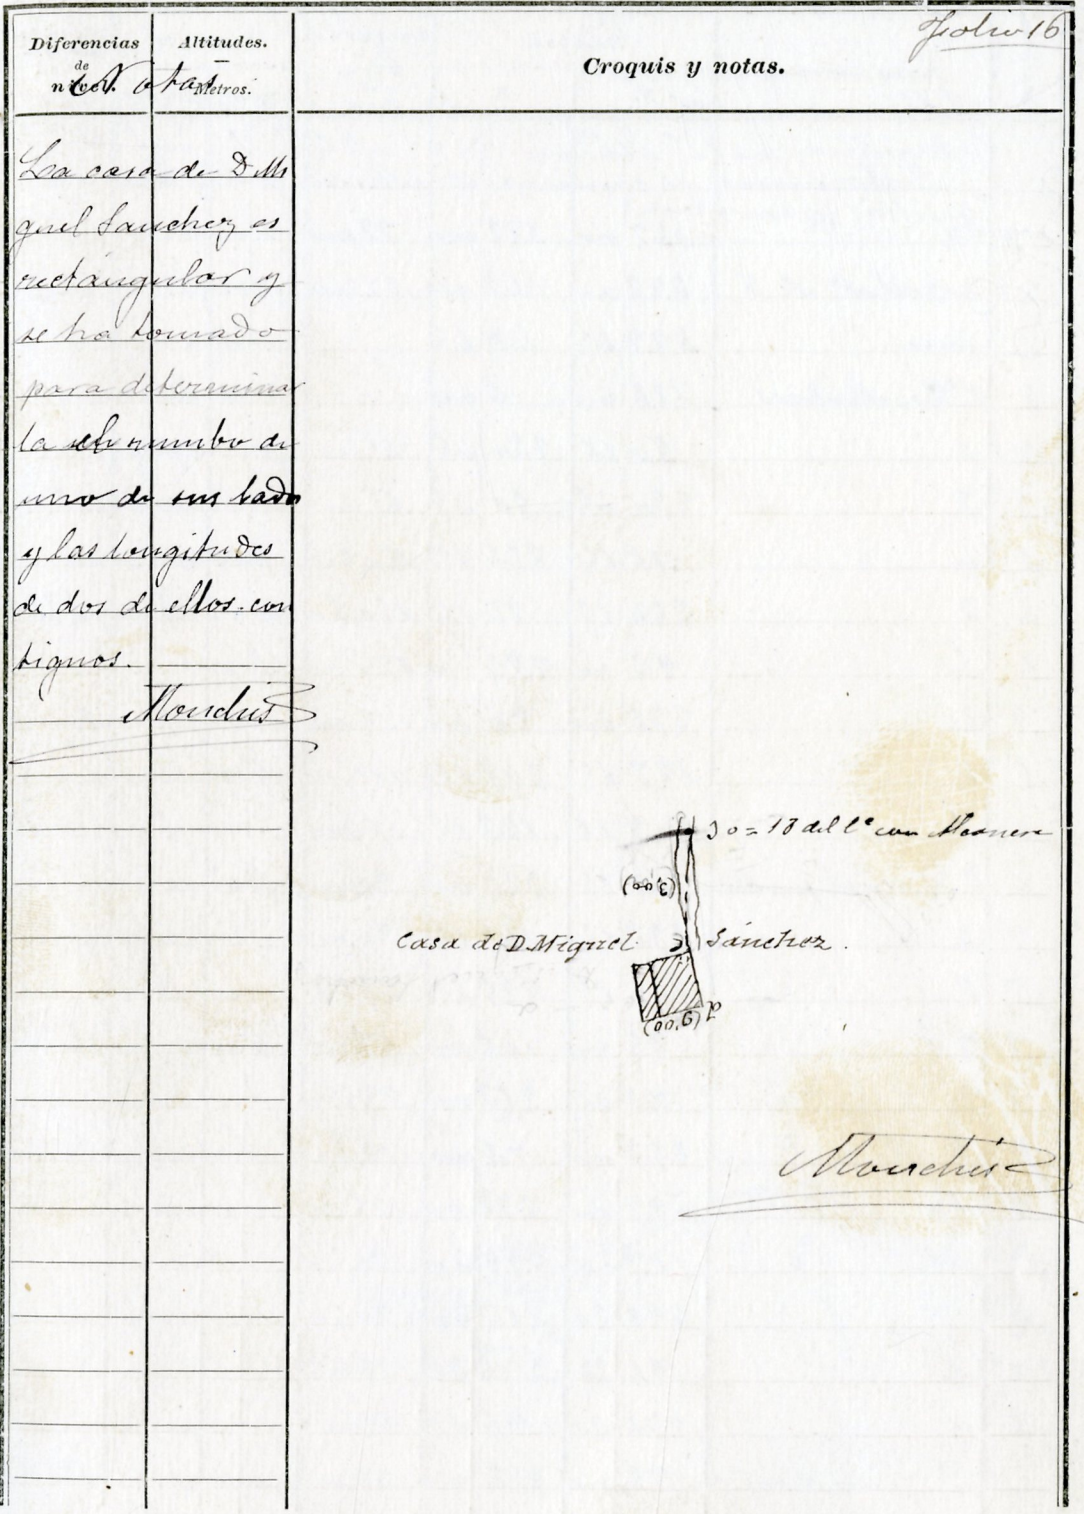 Folio 16
Diferencias
de
nivel.
Altitudes.
—
Metros.
Notas
Croquis y notas.
La casa de D. Mi
guel Sanchez es
rectángular y
se ha tomado
para determinar
la el rumbo de
uno de sus lados
y las longitudes
de dos de ellos con
tiguos.
30 = 18 del l° con
(3,00)
Casa de D. Miguel Sánchez.
(6,00)